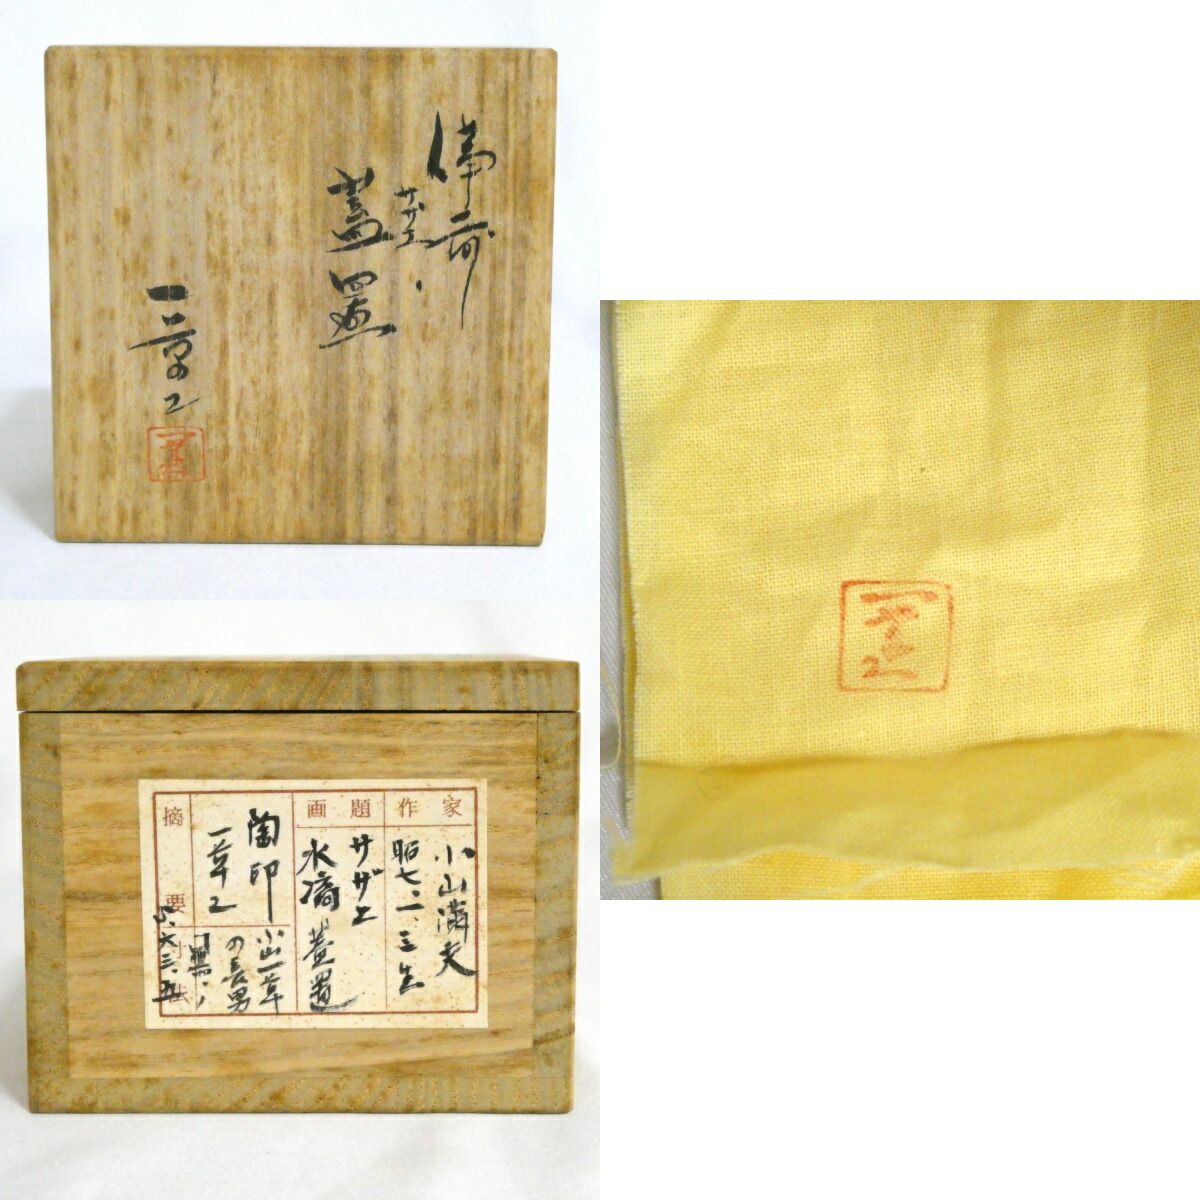 備前
サザエ
蓋置
一草の2
家
作
題
画
摘
要
小山満夫
昭七・一・三生
サザエ
水滴 蓋置
陶印
一草2
小山一草
の長男